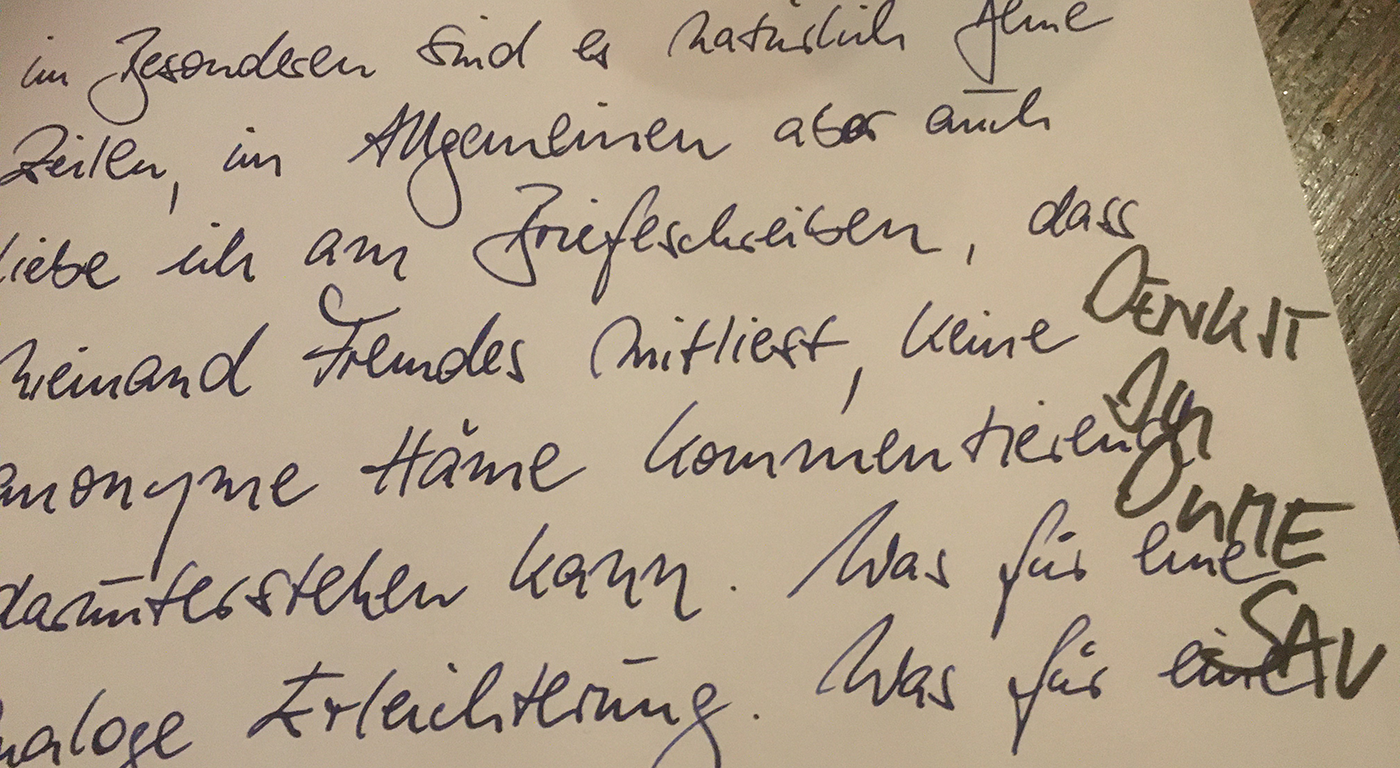 im Besonderen sind es natürlich Deine
Zeilen, im Allgemeinen aber auch
liebe ich am Briefeschreiben, dass
niemand Fremdes mitliest, keine
anonyme Häme kommentierend
darunterstehen kann. Was für eine
naloge Erleichterung. Was für eine
DENKST
OHNE
SAU